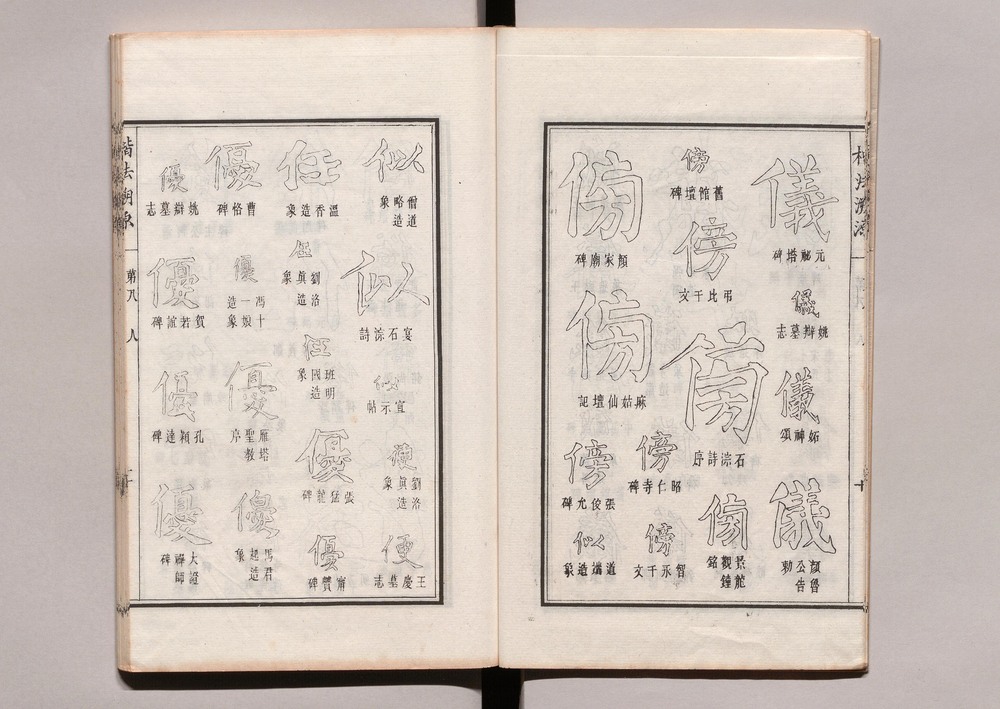 儀
元祕塔碑
儀
姚辯墓志
儀
妬神頌
儀
顏魯公告勅
傍
舊館壇碑
傍
弔比干文
傍
石淙詩序
傍
昭仁寺碑
傍
智永千文
傍
景龍觀鐘銘
傍
顏家廟碑
傍
麻姑仙壇記
傍
張俊允碑
似
道端造象
似
僧道略造象
似
宴石淙詩
似
宜示帖
便
劉洛眞造象
便
王慶墓志
任
溫香造象
任
劉洛眞造象
任
班明國造象
優
張猛龍碑
優
甯贙碑
優
曹恪碑
優
馮十一娘造象
優
雁塔聖教序
優
馬君起造象
優
姚辯墓志
優
賀若誼碑
優
孔穎達碑
優
大證禪師碑
楷法溯源
第八
人
十